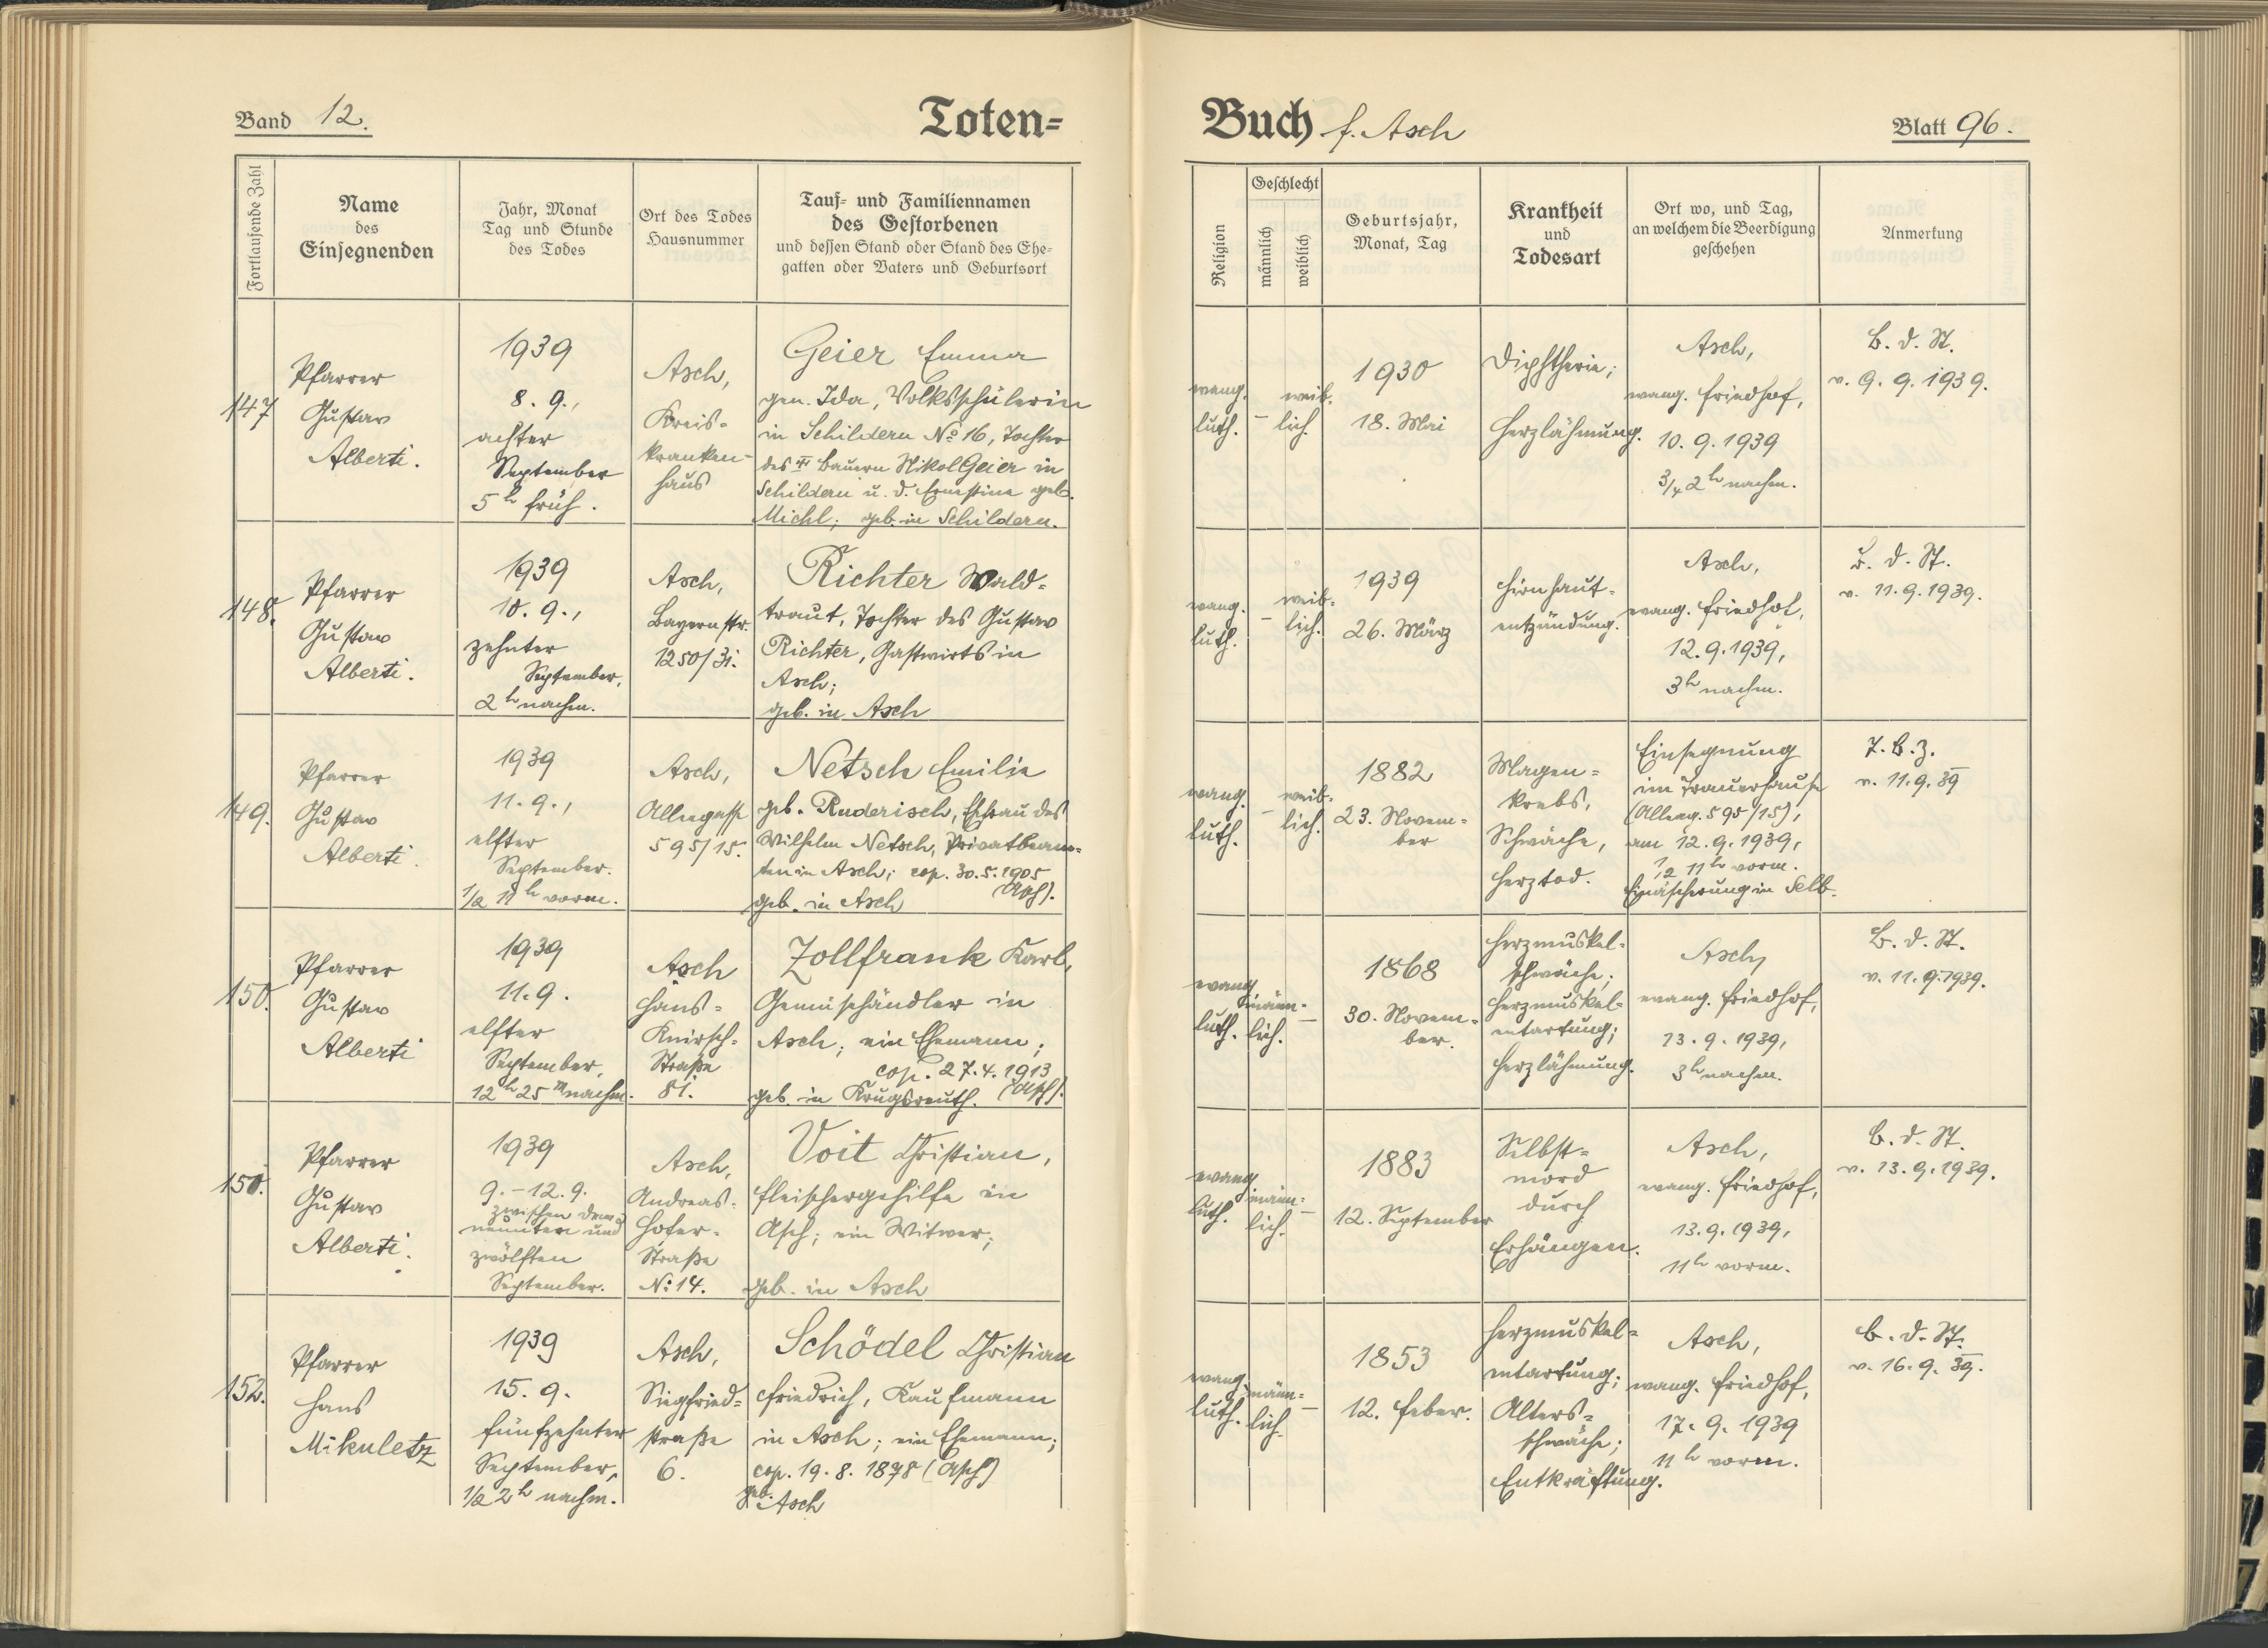 Band 12.
Toten-
Fortlaufende Zahl
Name
des
Einsegnenden
Jahr, Monat
Tag und Stunde
des Todes
Ort des Todes
Hausnummer
Tauf- und Familiennamen
des Gestorbenen
und dessen Stand oder Stand des Ehe-
gatten oder Vaters und Geburtsort
147
Pfarrer
Gustav
Alberti.
1939
8. 9.,
achter
September
5h früh.
Asch,
Kreis-
kranken-
haus
Geier Emma
gen. Ida, Volksschülerin
in Schildern No 16, Tochter
des Bauern Nikol Geier in
Schildern u. d. Ernestine geb.
Michl; geb. in Schildern.
148.
Pfarrer
Gustav
Alberti.
1939
10. 9.,
zehnter
September,
2h nachm.
Asch,
Bayernstr.
1250/31.
Richter Wald-
traut, Tochter des Gustav
Richter, Gastwirts in
Asch;
geb. in Asch
149.
Pfarrer
Gustav
Alberti.
1939
11. 9.,
elfter
September.
1/2 11h vorm.
Asch,
Alleegasse
595/15.
Netsch Emilie
geb. Ruderisch, Ehfrau des
Wilhelm Netsch, Privatbeam-
ten in Asch; cop. 30.5.1905
(Asch).
geb. in Asch
150.
Pfarrer
Gustav
Alberti
1939
11. 9.
elfter
September,
12h 25m nachm.
Asch
Hans-
Knirsch-
Straße
81.
Zollfrank Karl,
Gemüsehändler in
Asch; ein Ehemann;
cop. 27.4.1913
(Asch).
geb. in Krugsreuth.
150.
Pfarrer
Gustav
Alberti.
1939
9.-12.9.
zwischen dem
neunten und
zwölften
September.
Asch,
Andreas-
Hofer-
Straße
No 14.
Voit Christian,
Fleischergehilfe in
Asch; ein Witwer;
geb. in Asch
152.
Pfarrer
Hans
Mikuletz
1939
15. 9.
fünfzehnter
September,
1/2 2h nachm.
Asch,
Siegfried-
straße
6.
Schödel Christian
Friedrich, Kaufmann
in Asch; ein Ehemann;
cop. 19. 8. 1878 (Asch)
geb.
Asch
Buch f. Asch
Blatt 96.
Religion
Geschlecht
männlich
weiblich
Geburtsjahr,
Monat, Tag
Krankheit
und
Todesart
Ort wo, und Tag,
an welchem die Beerdigung
geschehen
Anmerkung
evang.
luth.
–
weib-
lich.
1930
18. Mai
Diphtherie;
Herzlähmung.
Asch,
evang. Friedhof,
10. 9. 1939
3/4 2h nachm.
B. d. St.
v. 9. 9. 1939.
evang.
luth.
–
weib-
lich.
1939
26. März
Hirnhaut-
entzündung.
Asch,
evang. Friedhof,
12. 9. 1939,
3h nachm.
B. d. St.
v. 11. 9. 1939.
evang.
luth.
–
weib-
lich.
1882
23. Novem-
ber
Magen-
krebs,
Schwäche,
Herztod.
Einsegnung
im Trauerhause
(Alleeg. 595/15),
am 12. 9. 1939,
1/2 11h vorm.
Einäscherung in Selb.
v. 11. 9. 39
evang.
luth.
männ-
lich.
–
1868
30. Novem-
ber.
Herzmuskel-
schwäche;
Herzmuskel-
entartung;
Herzlähmung.
Asch,
evang. Friedhof,
13. 9. 1939,
3h nachm.
B. d. St.
v. 11. 9. 1939.
evang.
luth.
männ-
lich.
–
1883
12. September
Selbst-
mord
durch
Erhängen.
Asch,
evang. Friedhof,
13. 9. 1939,
11h vorm.
B. d. St.
v. 13. 9. 1939.
evang.
luth.
männ-
lich.
–
1853
12. Feber.
Herzmuskel-
entartung;
Alters-
schwäche;
Entkräftung.
Asch,
evang. Friedhof,
17. 9. 1939
11h vorm.
B. d. St.
v. 16. 9. 39.